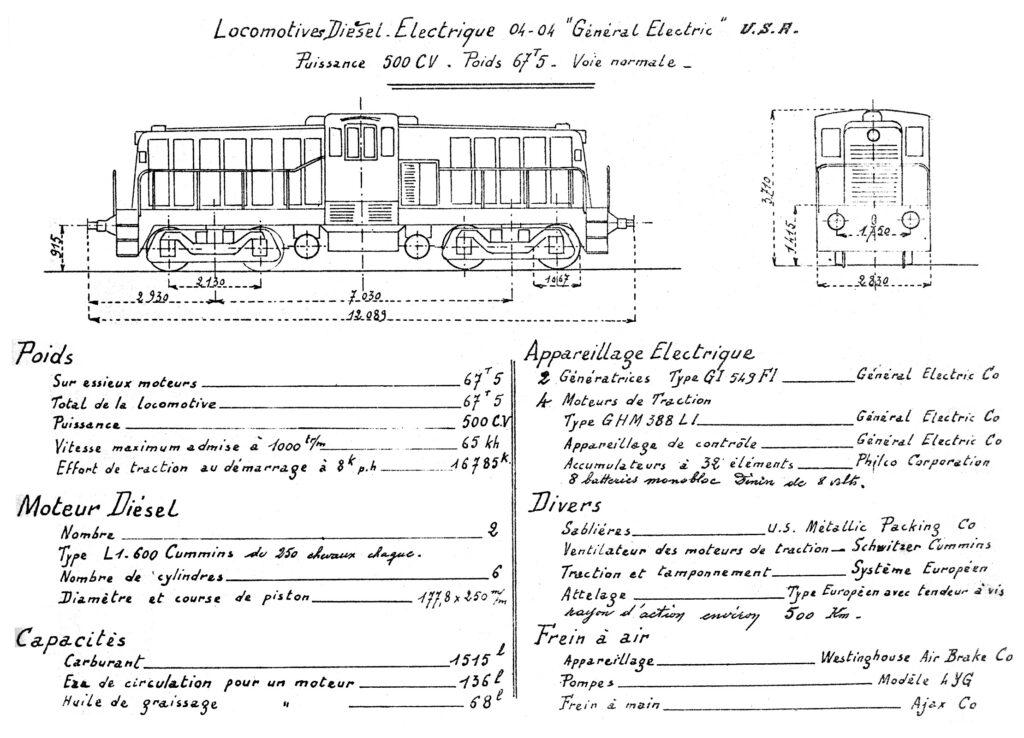 Locomotives Diésel-Electrique 04-04 "Général Electric" U.S.A.
Puissance 500 CV. Poids 67T5. Voie normale
915
2 130
2 930
7 030
12 089
1067
3.710
1.415
1.750
2 830
Poids
Sur essieux moteurs 67T5
Total de la locomotive 67T5
Puissance 500 CV
Vitesse maximum admise à 1000 t/m 65 kh
Effort de traction au démarrage à 8k p.h 16785k
Moteur Diésel
Nombre 2
Type L1-600 Cummins de 250 chevaux chaque.
Nombre de cylindres 6
Diamètre et course de piston 177,8 x 250 m/m
Capacités
Carburant 1515 l
Eau de circulation pour un moteur 136 l
Huile de graissage " 68 l
Appareillage Electrique
2 Génératrices Type GI 549 FI Général Electric Co
4 Moteurs de Traction
Type GHM 388 LI Général Electric Co
Appareillage de contrôle Général Electric Co
Accumulateurs à 32 éléments Philco Corporation
8 batteries monobloc Dinin de 8 volts.
Divers
Sablières U.S. Métallic Packing Co
Ventilateur des moteurs de traction Schwitzer Cummins
Traction et tamponnement Système Européen
Attelage Type Européen avec tendeur à vis
rayon d'action environ 500 Km.
Frein à air
Appareillage Westinghouse Air Brake Co
Pompes Modèle 4YG
Frein à main Ajax Co